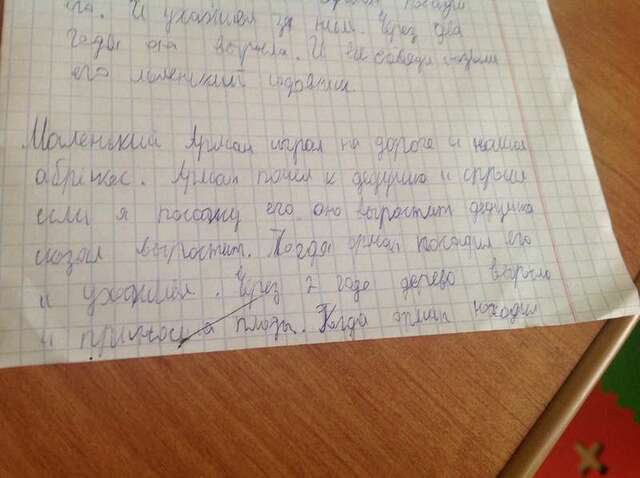 ега. И ухажиал за ним. Через два
года она выросла. И
его маленький
Маленький Арман играл на дороге и нашел
абрикос. Арман пошел к дедушке и спросил
если я посажу его оно выростит дедушка
сказал выростит. Когда арман посадил его
и ухажиал. Через 2 года дерево выросло
и приносила плоды. Когда арман уходил